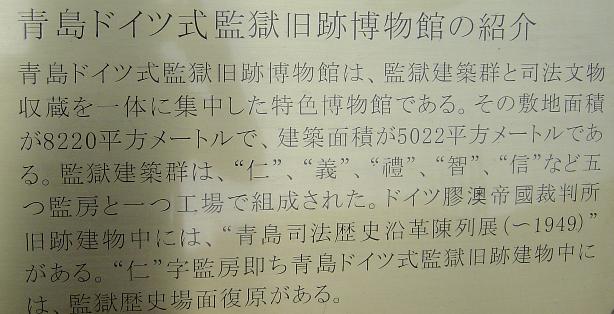 青島ドイツ式監獄旧跡博物館の紹介
青島ドイツ式監獄旧跡博物館は、監獄建築群と司法文物
収蔵を一体に集中した特色博物館である。その敷地面積
が8220平方メートルで、建築面積が5022平方メートルであ
る。監獄建築群は、“仁”、“義”、“禮”、“智”、“信”など五
つ監房と一つ工場で組成された。ドイツ膠澳帝國裁判所
旧跡建物中には、“青島司法歴史沿革陳列展(～1949)”
がある。“仁”字監房即ち青島ドイツ式監獄旧跡建物中に
は、監獄歴史場面復原がある。